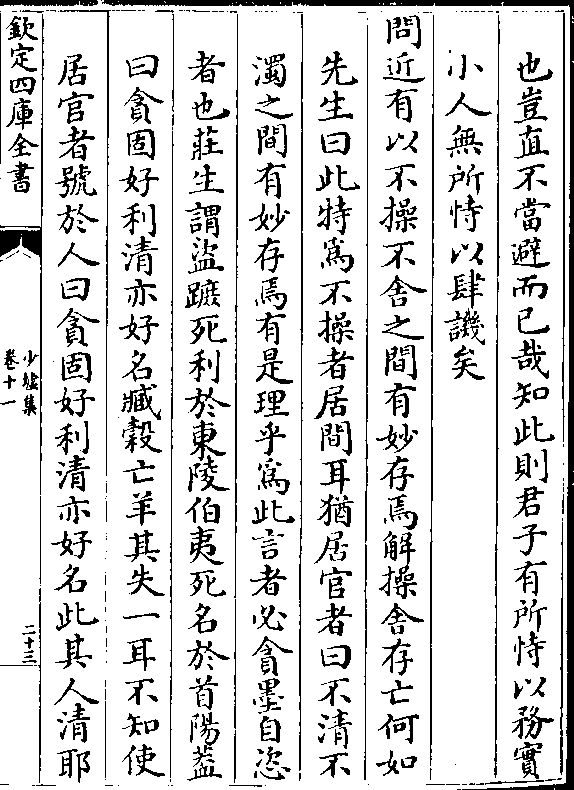 也豈直不當避而已哉知此則君子有所恃以務實
小人無所恃以肆譏矣
問近有以不操不舍之間有妙存焉解操舍存亡何如
先生曰此特為不操者居間耳猶居官者曰不清不
濁之間有妙存焉有是理乎為此言者必貪墨自恣
者也莊生謂盜蹠死利於東陵伯夷死名於首陽葢
曰貪固好利清亦好名臧穀亡羊其失一耳不知使
居官者號於人曰貪固好利清亦好名此其人清耶
欽定四庫全書
少墟集
卷十一
二十三